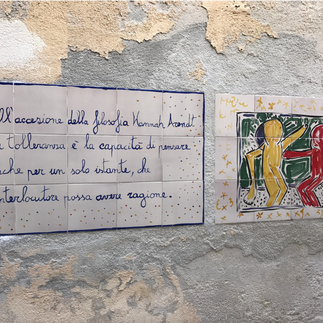 ll'accezione della filosofia Hannah Arendt
tolleranza è la capacità di pensare
che per un solo istante, che
interlocutore possa avere ragione.